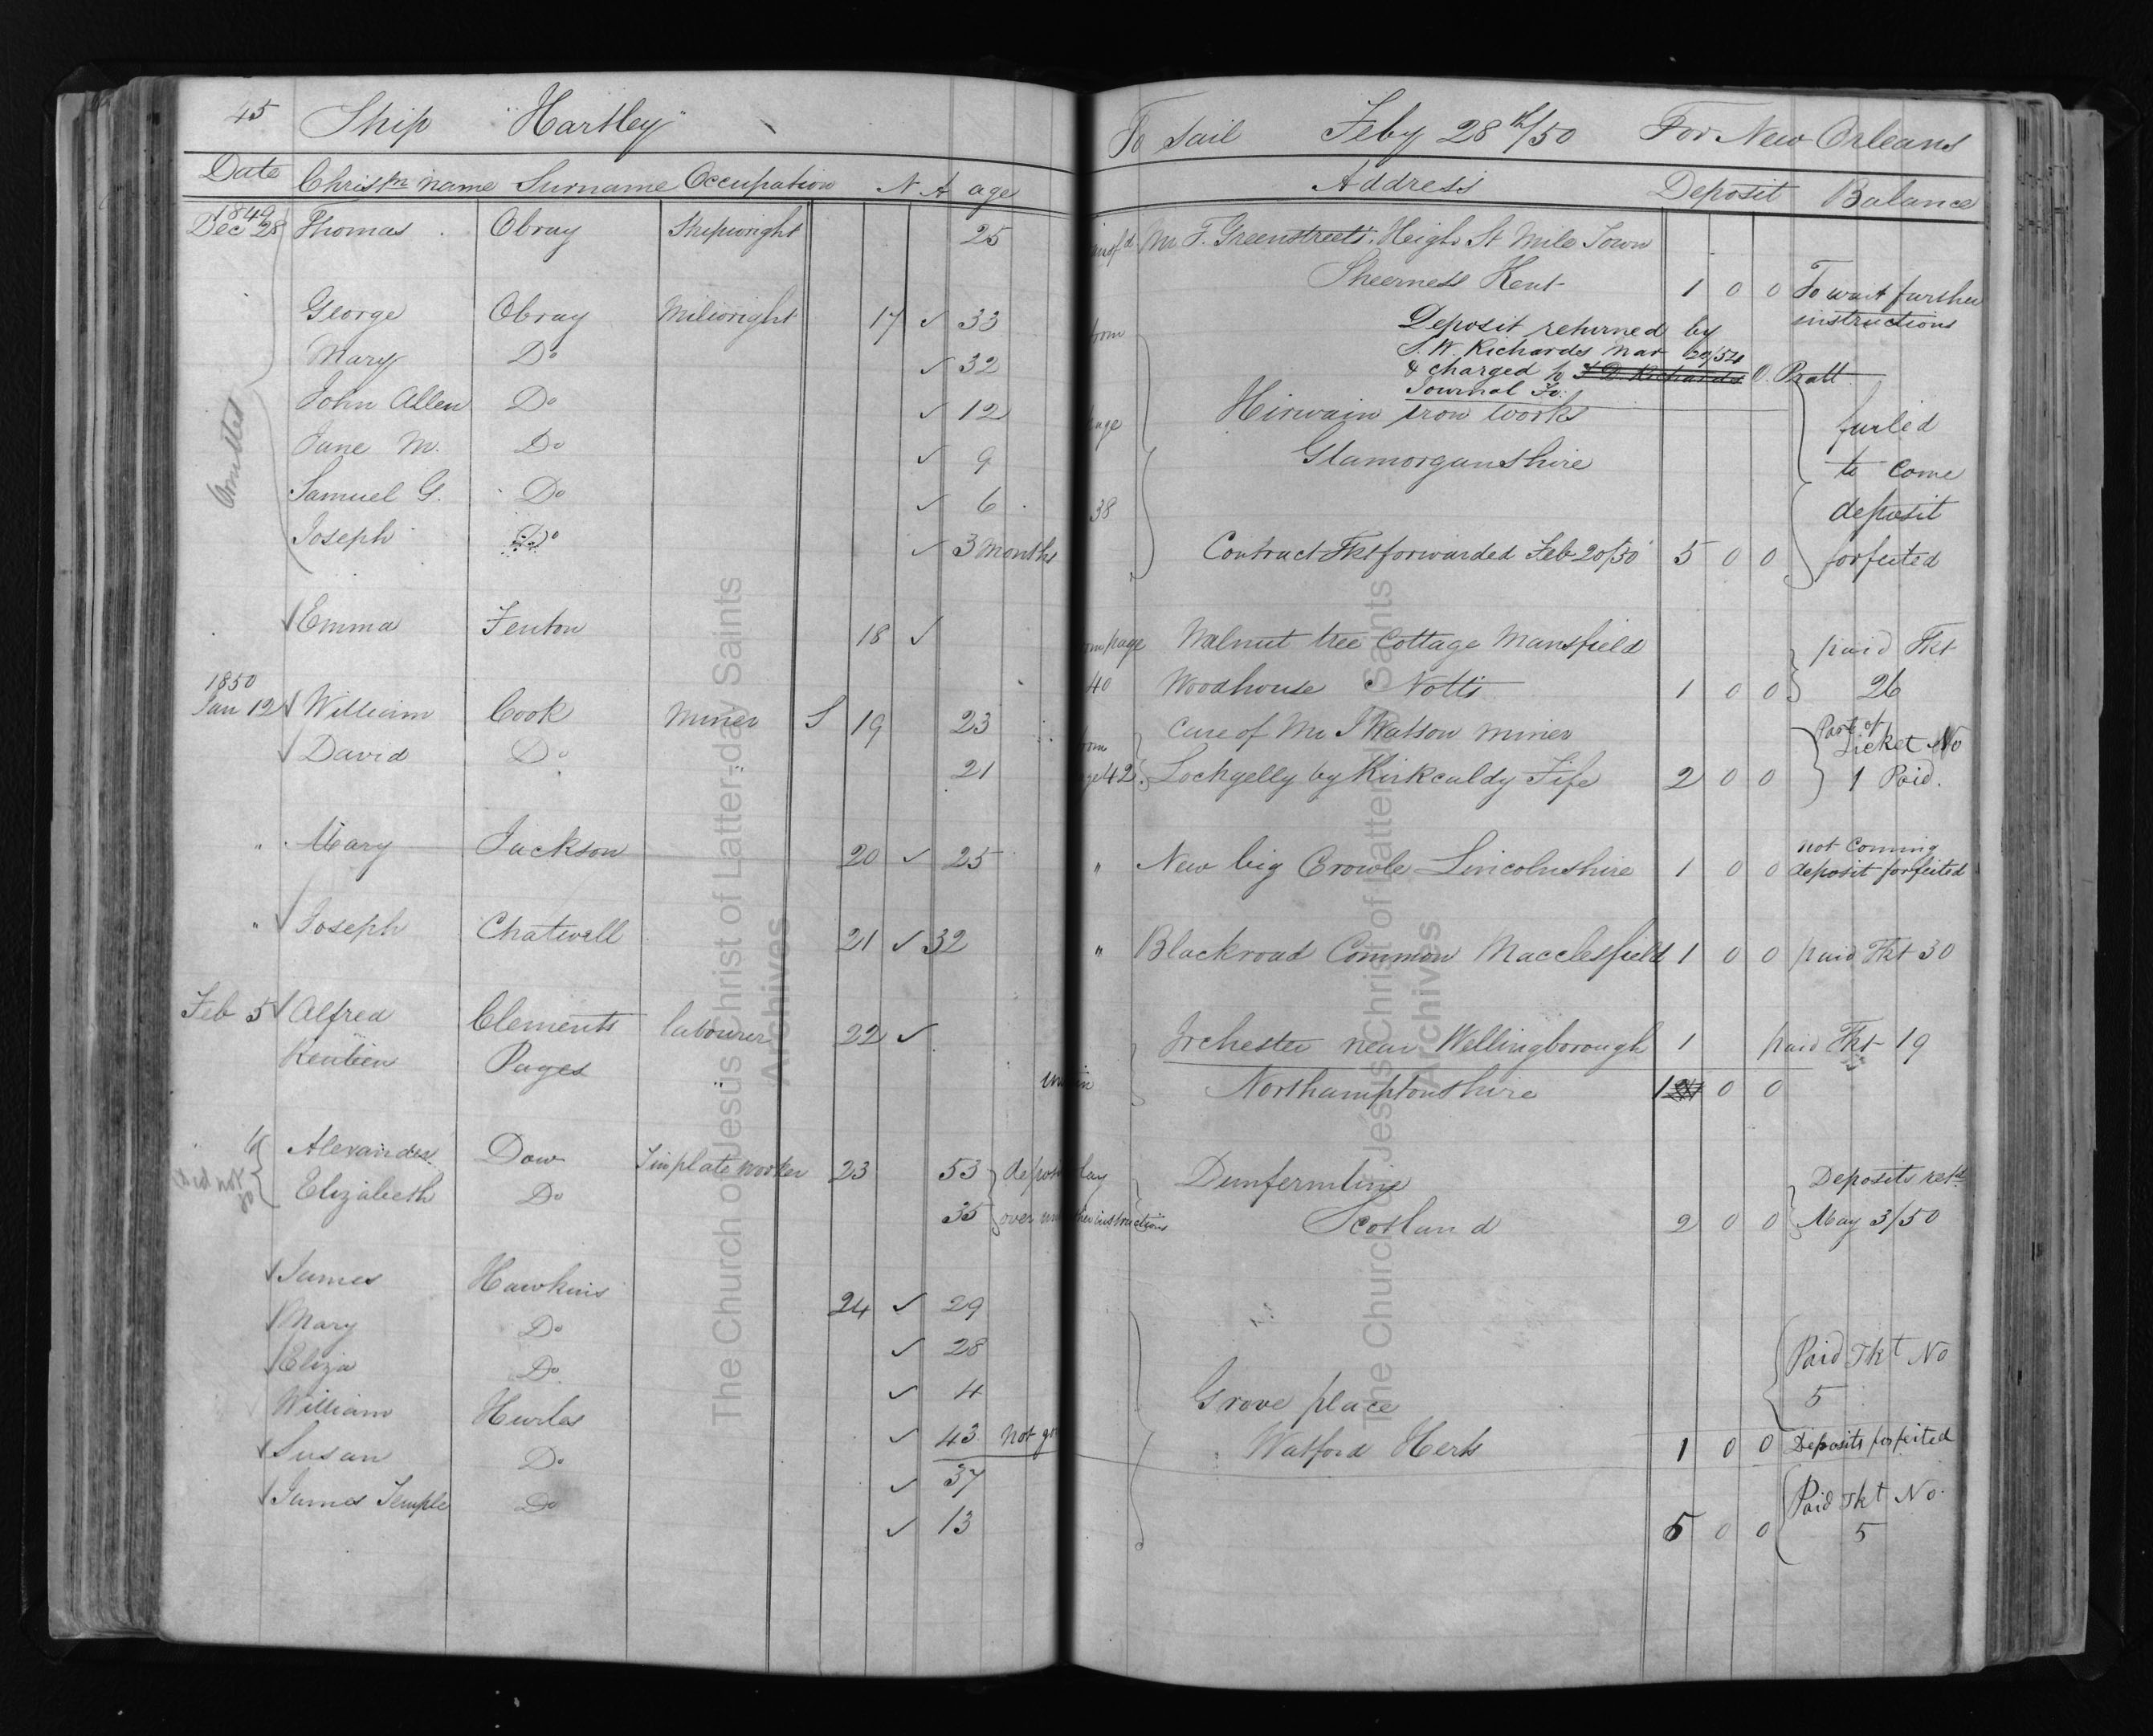 45 Ship "Hartley" To Sail Feby 28th/50 For New Orleans
Date Christn name Surname Occupation N. A age Address Deposit Balance
1849
Dec 28 Thomas Obray Shipwright 25 Mr T. Greenstreets. Heigh St Mile Town
Sheerness Kent 1 0 0 To wait further
instructions
George Obray Millwright 17 ✓ 33 Deposit returned by
Mary Do ✓ 32 S. W. Richards Mar 20/54
& charged to S D. Richards O. Pratt
Journal Fo.
John Allen Do ✓ 12 Hirwain iron works failed
Jane M. Do ✓ 9 Glamorganshire to Come
Samuel G. Do ✓ 6 38 deposit
Joseph Do ✓ 3 months Contract Tkt forwarded Feb 20/50 5 0 0 forfeited
Omitted
✓ Emma Fenton 18 ✓ page Walnut tree Cottage Mansfield paid Tkt
40 Woodhouse Notts 1 0 0 26
1850
Jan 12 ✓ William Cook Miner S 19 23 Care of Mr J Watson miner Part of
Ticket No
✓ David Do 21 42 Lochgelly by Kirkcaldy Fife 2 0 0 1 Paid.
" Mary Jackson 20 ✓ 25 " New big Crowle Lincolnshire 1 0 0 not Coming
deposit forfeited
" ✓ Joseph Chatwell 21 ✓ 32 " Blackroad Common Macclesfield 1 0 0 paid Tkt 30
Feb 5 ✓ Alfred Clements labourer 22 ✓ Irchester near Wellingborough 1 paid Tkt 19
Reuben Pages Northamptonshire 1 0 0
6 Alexander Dow Tinplate worker 23 53 Dunfermline Deposits retd
did not go Elizabeth Do 35 over instructions Scotland 2 0 0 May 3/50
✓ James Hawkins 24 ✓ 29
✓ Mary Do ✓ 28 Paid Tkt No
✓ Eliza Do ✓ 4 Grove place 5
William Hurles ✓ 43 Not Watford Herts 1 0 0 Deposits forfeited
✓ Susan Do ✓ 37 Paid Tkt No.
✓ James Temple Do ✓ 13 5 0 0 5
The Church of Jesus Christ of Latter-day Saints
Archives
The Church of Jesus Christ of Latter-day Saints
Archives